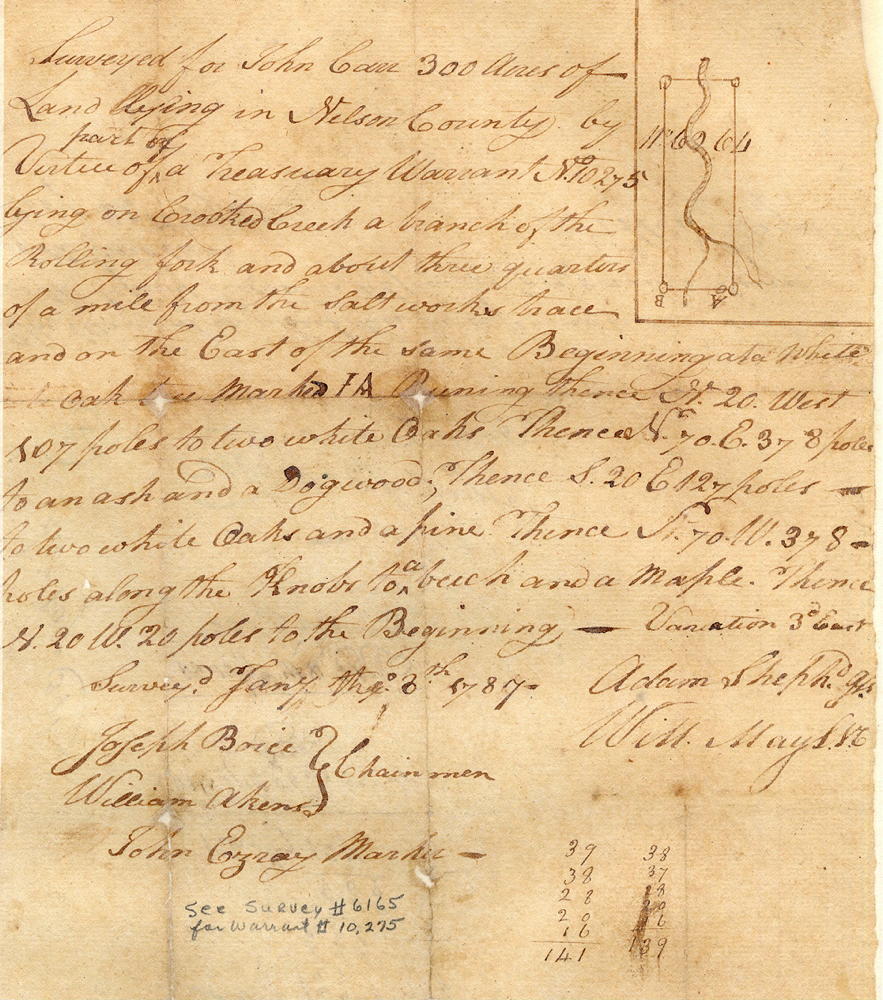 Surveyed for John Carr 300 Acres of
Land lying in Nelson County by
part of
Virtue of ^ a Treasuary Warrant No. 10275
lying on Crooked Creek a branch of the
Rolling fork and about three quarters
of a mile from the Saltworks trace
and on the East of the same Beginning at a White
Oak tree Marked IA Runing thence N. 20. West
107 poles to two white Oaks Thence N. 70. E. 378 poles
to an ash and a Dogwood, Thence S. 20 E 127 poles
to two white Oaks and a pine Thence S. 70. W. 378
poles along the Knobs to ^a beech and a Maple. Thence
N. 20 W. 20 poles to the Beginning — Variation 3d East
Survey.d Jany. the 8th 1787
Adam Shephd
Will. May
Joseph Brice } Chainmen
William Akens
John Marker
B A
39 38
38 37
28 28
20 20
16 16
141 139
See Survey #6165
for Warrant # 10,275